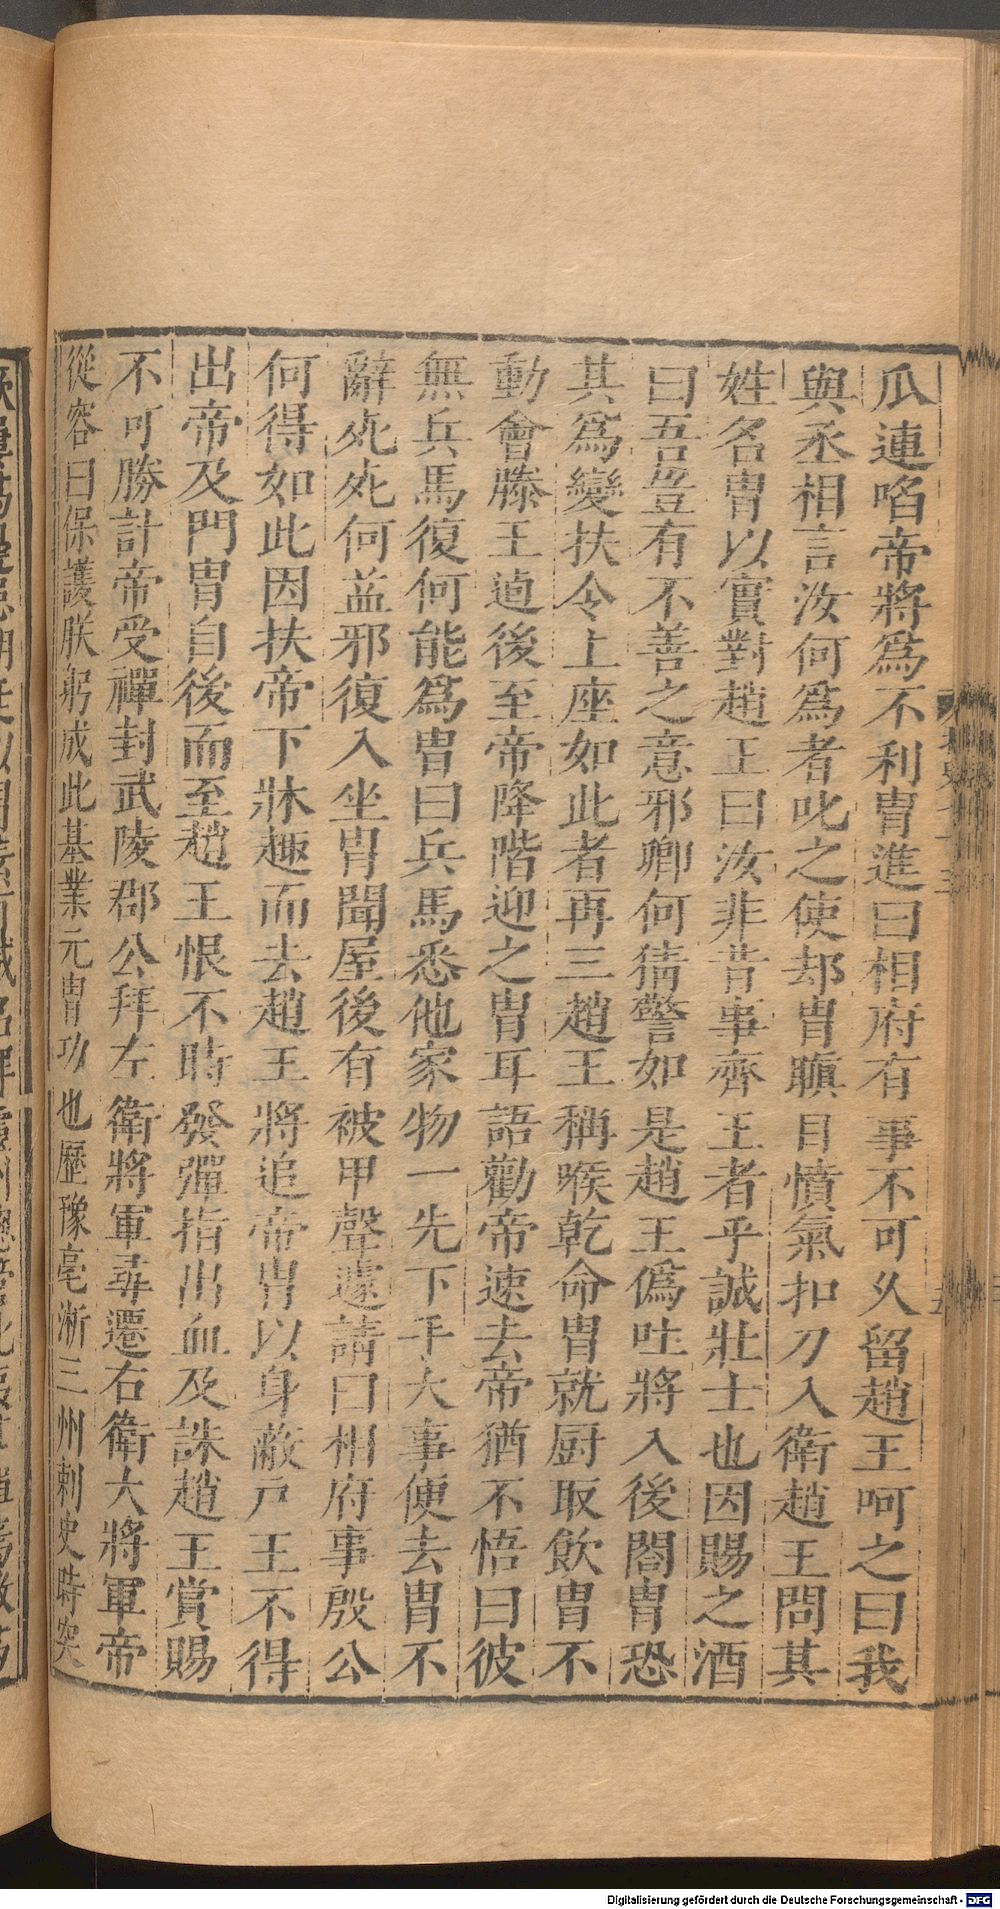 瓜連啗帝將爲不利冑進曰相府有事不可久留趙王呵之曰我
與丞相言汝何爲者叱之使却冑瞋目憤氣扣刀入衛趙王問其
姓名冑以實對趙王曰汝非昔事齊王者乎誠壯士也因賜之酒
曰吾豈有不善之意邪卿何猜警如是趙王僞吐將入後閤冑恐
其爲變扶令上座如此者再三趙王稱喉乾命冑就厨取飲冑不
動會滕王逌後至帝降階迎之冑耳語勸帝速去帝猶不悟曰彼
無兵馬復何能爲冑曰兵馬悉他家物一先下手大事便去冑不
辭死死何益邪復入坐冑聞屋後有被甲聲遽請曰相府事殷公
何得如此因扶帝下牀趣而去趙王將追帝冑以身蔽戸王不得
出帝及門冑自後而至趙王恨不時發彈指出血及誅趙王賞賜
不可勝計帝受禪封武陵郡公拜左衛將軍尋遷右衛大將軍帝
從容曰保護朕躬成此基業元冑功也歷豫亳淅三州刺史時突
Digitalisierung gefördert durch die Deutsche Forschungsgemeinschaft - DFG